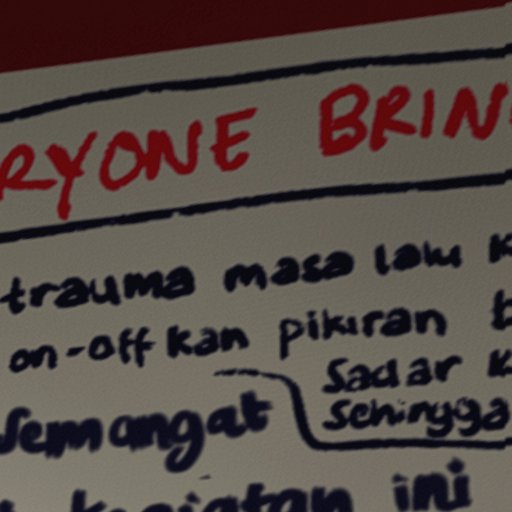 RYONE BRIN
trauma masa lalu K
on-off kan pikiran b
sadar K
sehingga
Semangat
kegiatan ini